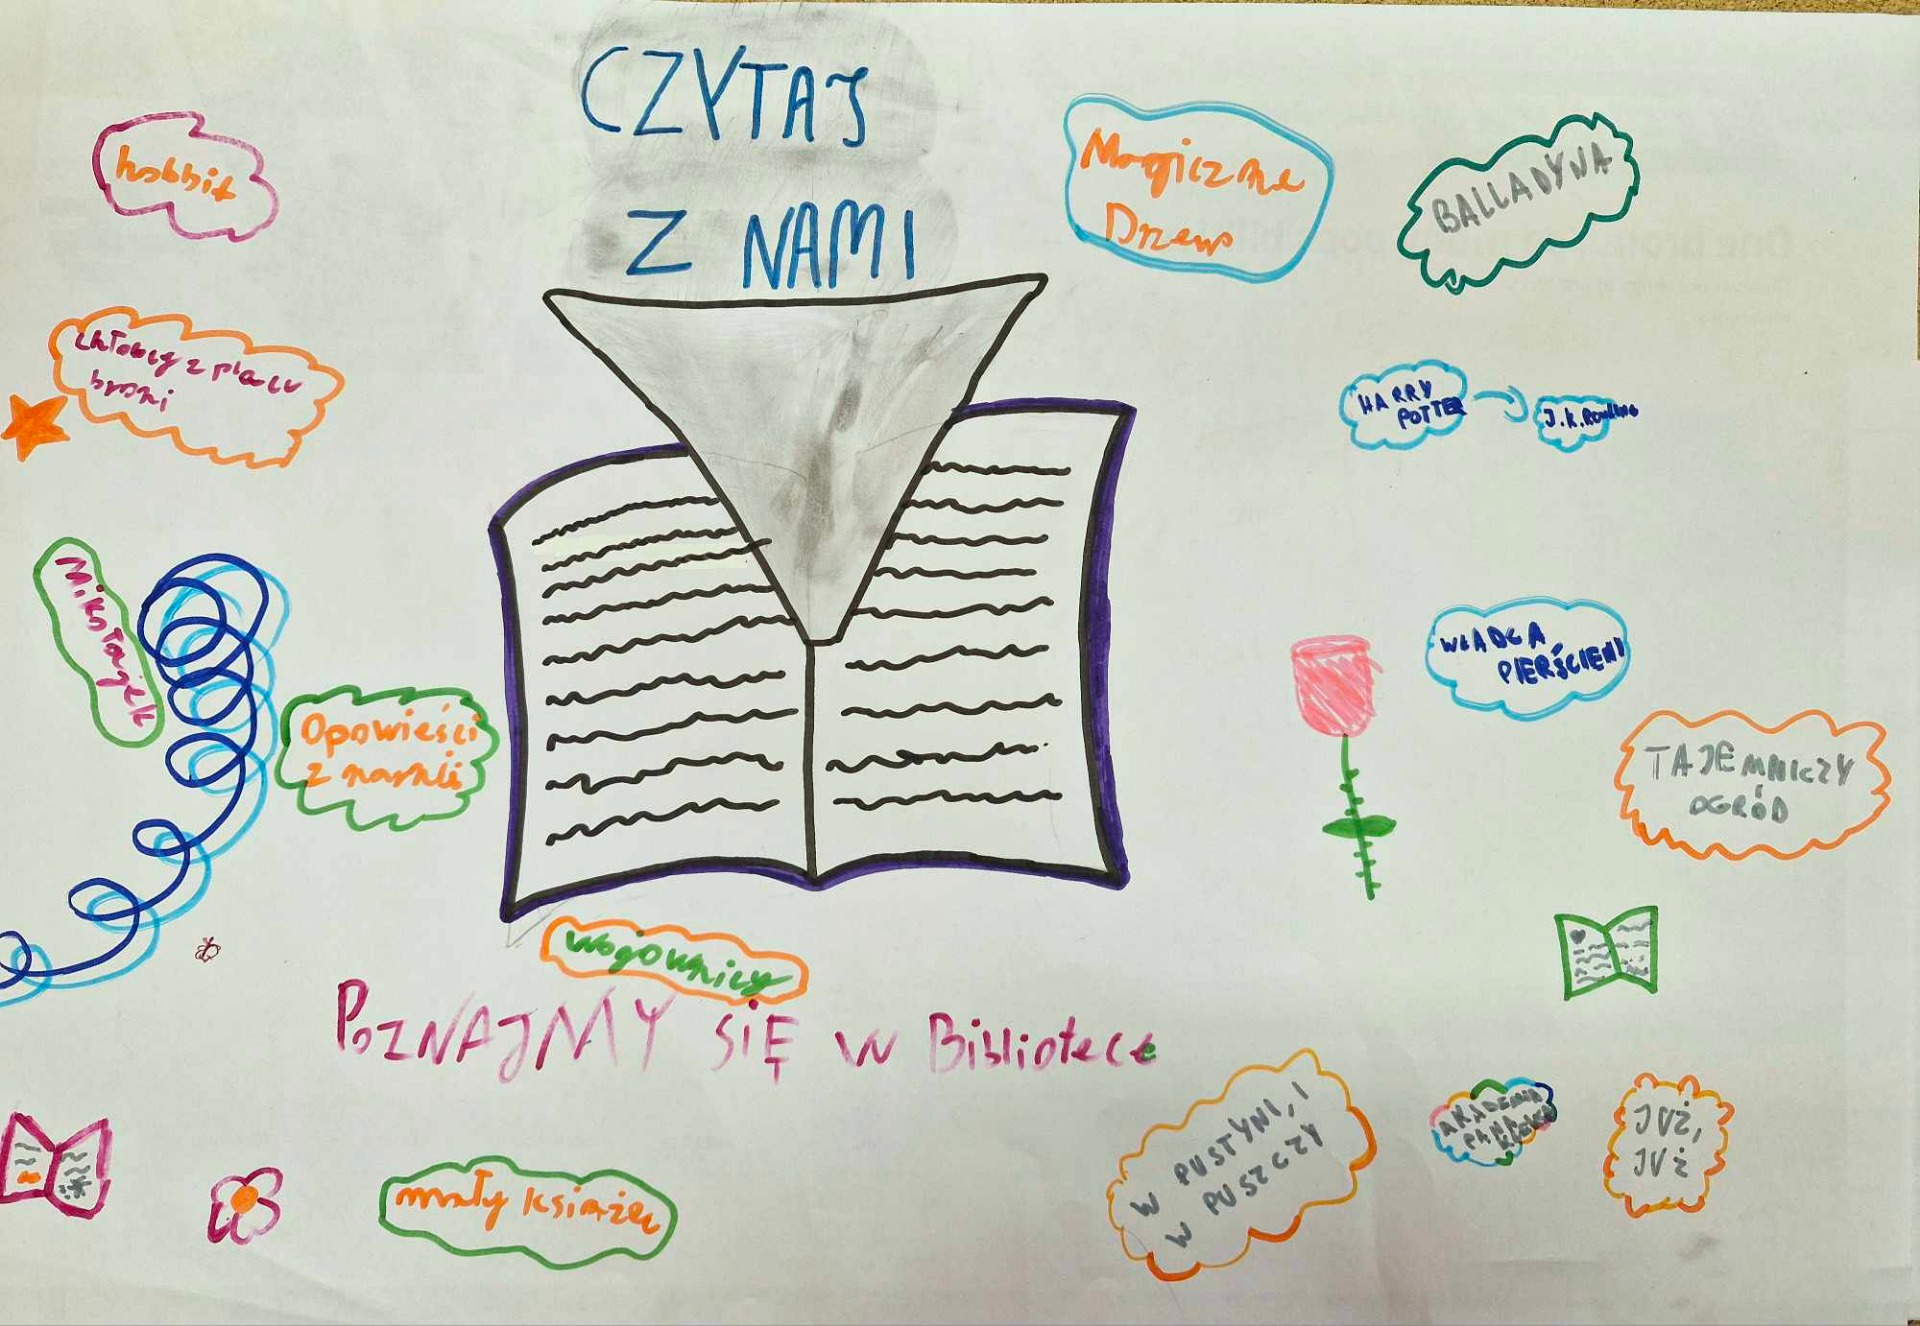 CZYTAJ
Z NAMI
hobbit
Magiczne
Drzewo
BALLADYNA
chłopcy z placu
broni
HARRY
POTTER
J.K. Rowling
Mikołajek
Opowieści
z narnii
WŁADCA
PIERŚCIENI
TAJEMNICZY
OGRÓD
wojownicy
POZNAJMY SIĘ W Bibliotece
mały książę
W PUSTYNI, I
W PUSZCZY
AKADEMIA
PANA
KLEKSA
JUŻ,
JUŻ